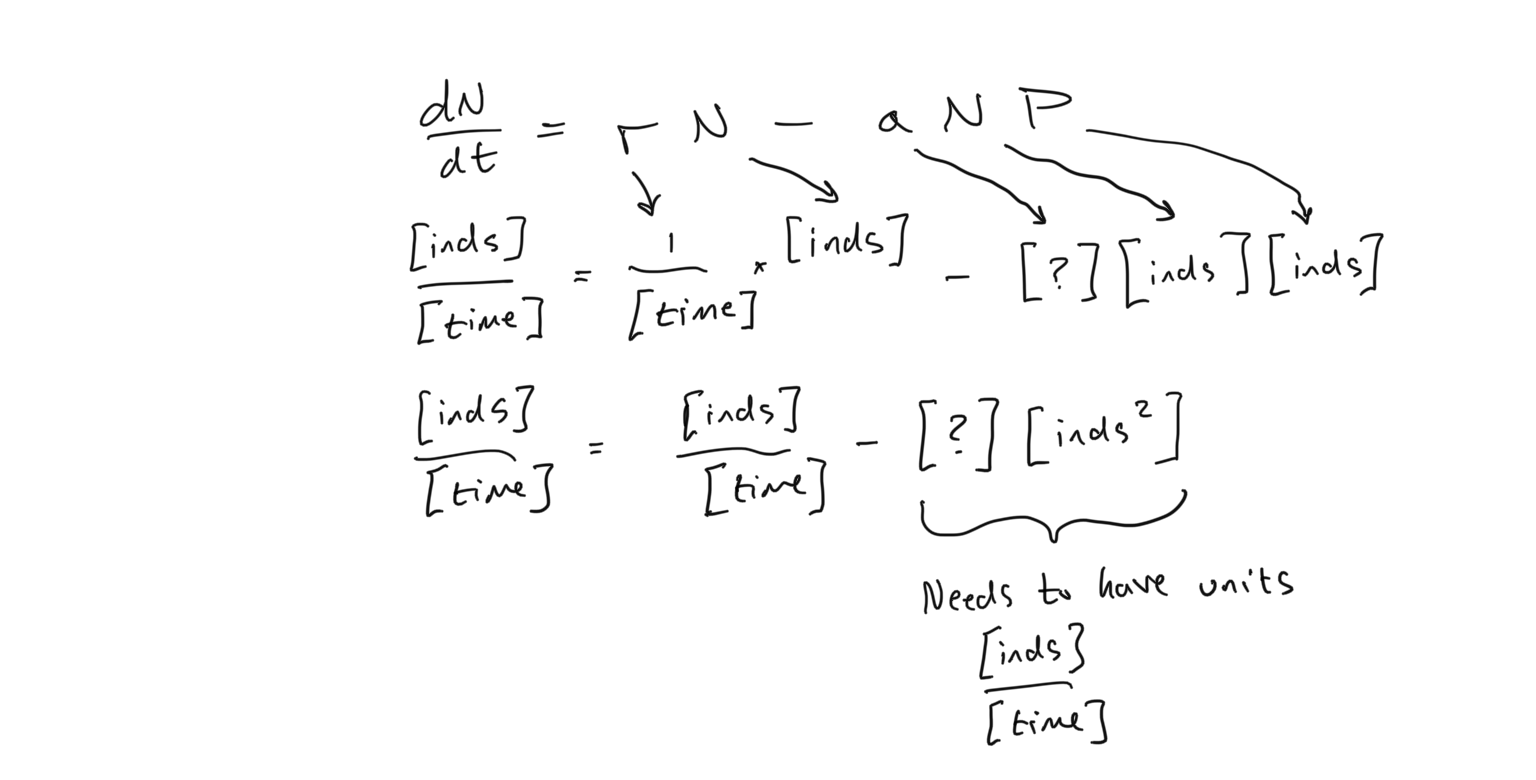 dN/dt = r N - a N P
[inds]/[time] = 1/[time] * [inds] - [?] [inds] [inds]
[inds]/[time] = [inds]/[time] - [?] [inds²]
Needs to have units
[inds]/[time]